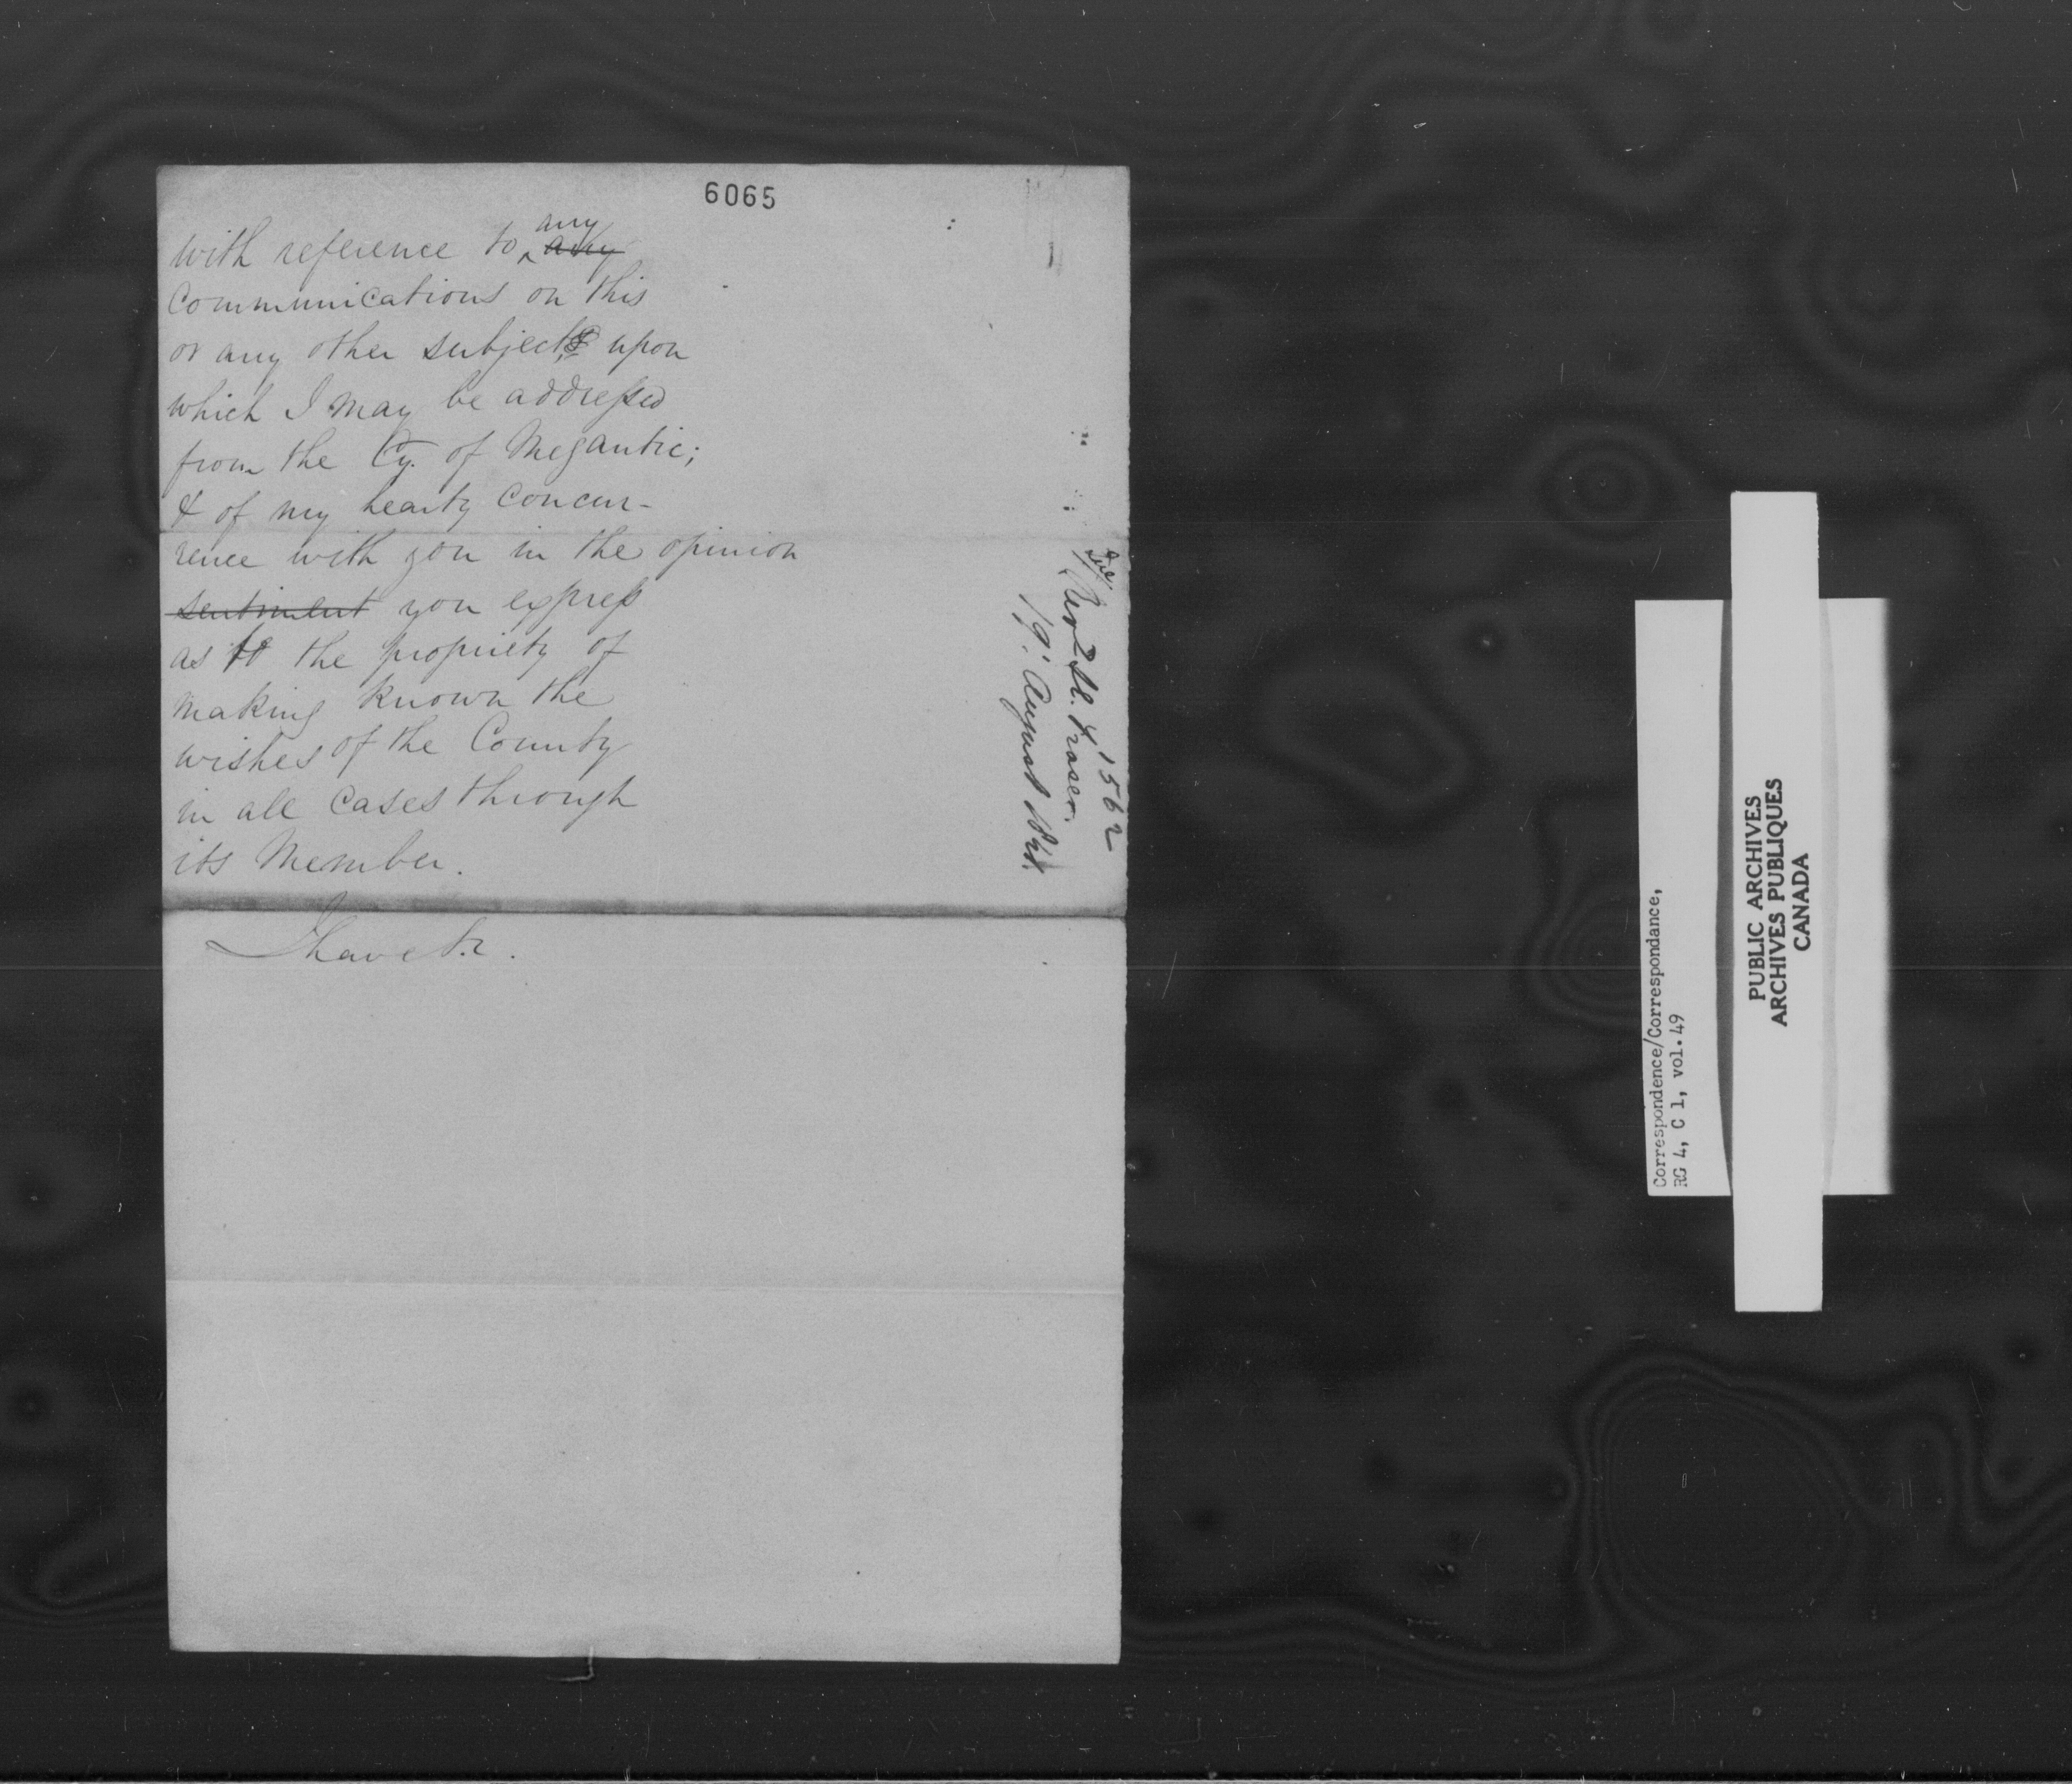 6065
with reference to any any
Communications on this
or any other subject upon
which I may be addressed
from the Cy. of Megantic;
& of my hearty concur-
rence with you in the opinion
sentiment you express
as to the propriety of
making known the
wishes of the County
in all Cases through
its Member.
I have &c.
1562
Fraser
19. August
Correspondence/Correspondance,
RG 4, C 1, vol. 49
PUBLIC ARCHIVES
ARCHIVES PUBLIQUES
CANADA